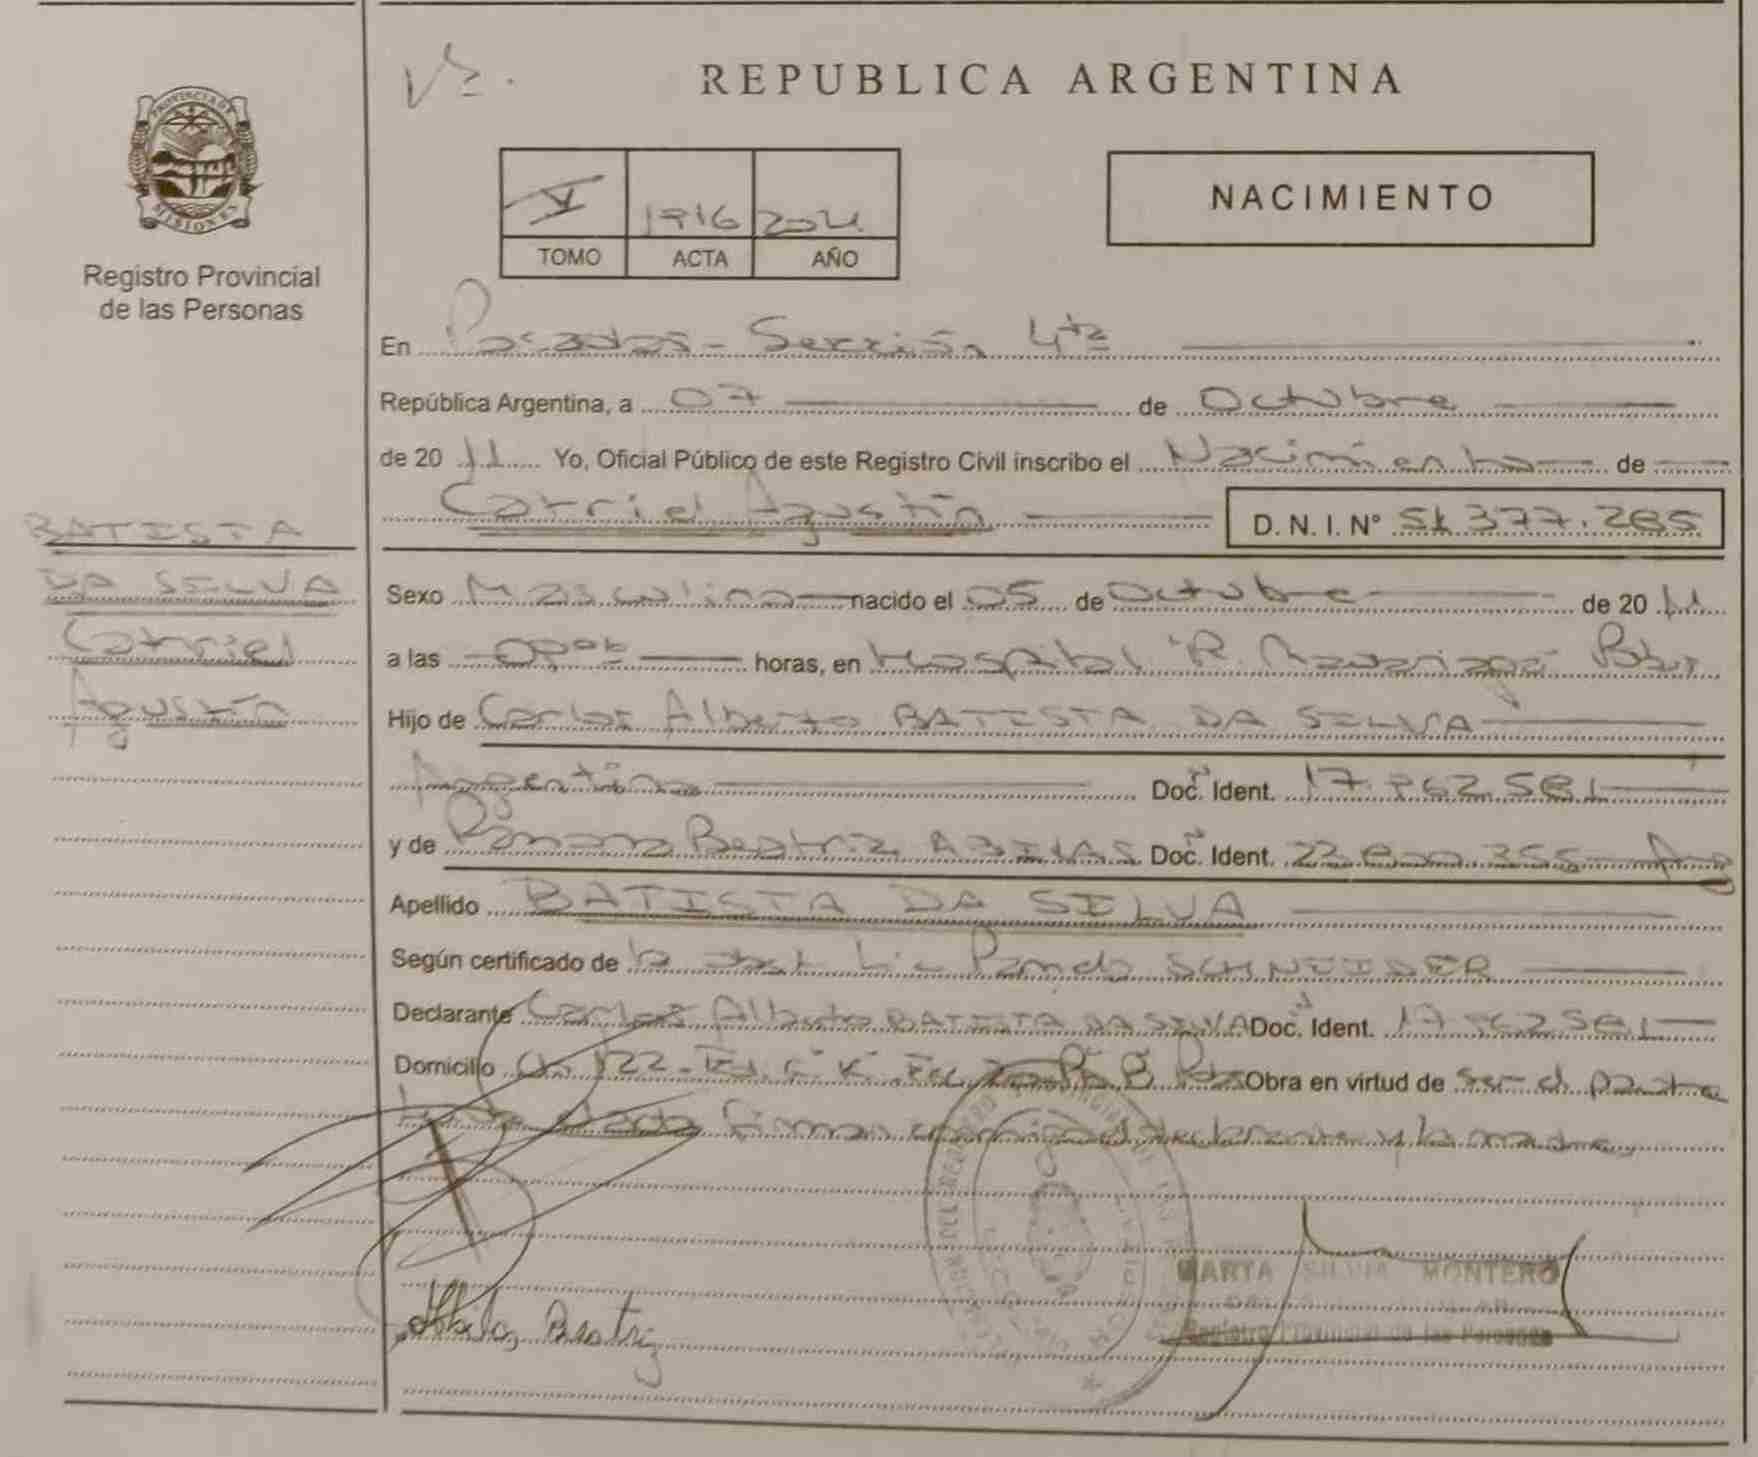 PROVINCIA DE
MISIONES
Registro Provincial
de las Personas
BATISTA
DA SILVA
Catriel
Agustín
REPUBLICA ARGENTINA
V 1716 2011
TOMO ACTA AÑO
NACIMIENTO
En Posadas - Sección 4ta
República Argentina, a 07 de Octubre
de 20 11 Yo, Oficial Público de este Registro Civil inscribo el Nacimiento de
Catriel Agustín D.N.I. N° 51.377.285
Sexo Masculino nacido el 05 de Octubre de 20 11
a las horas, en Hospital R. Madariaga
Hijo de Carlos Alberto BATISTA DA SILVA
Argentino Doc. Ident. 17.
y de Beatriz Doc. Ident. 22 Arg
Apellido BATISTA DA SILVA
Según certificado de la
Declarante Carlos Alberto BATISTA DA SILVA Doc. Ident. 17
Domicilio 122 Obra en virtud de ser el padre
firman conmigo declarante y la madre
Beatriz
MARTA SILVIA MONTERO
Registro Provincial de las Personas